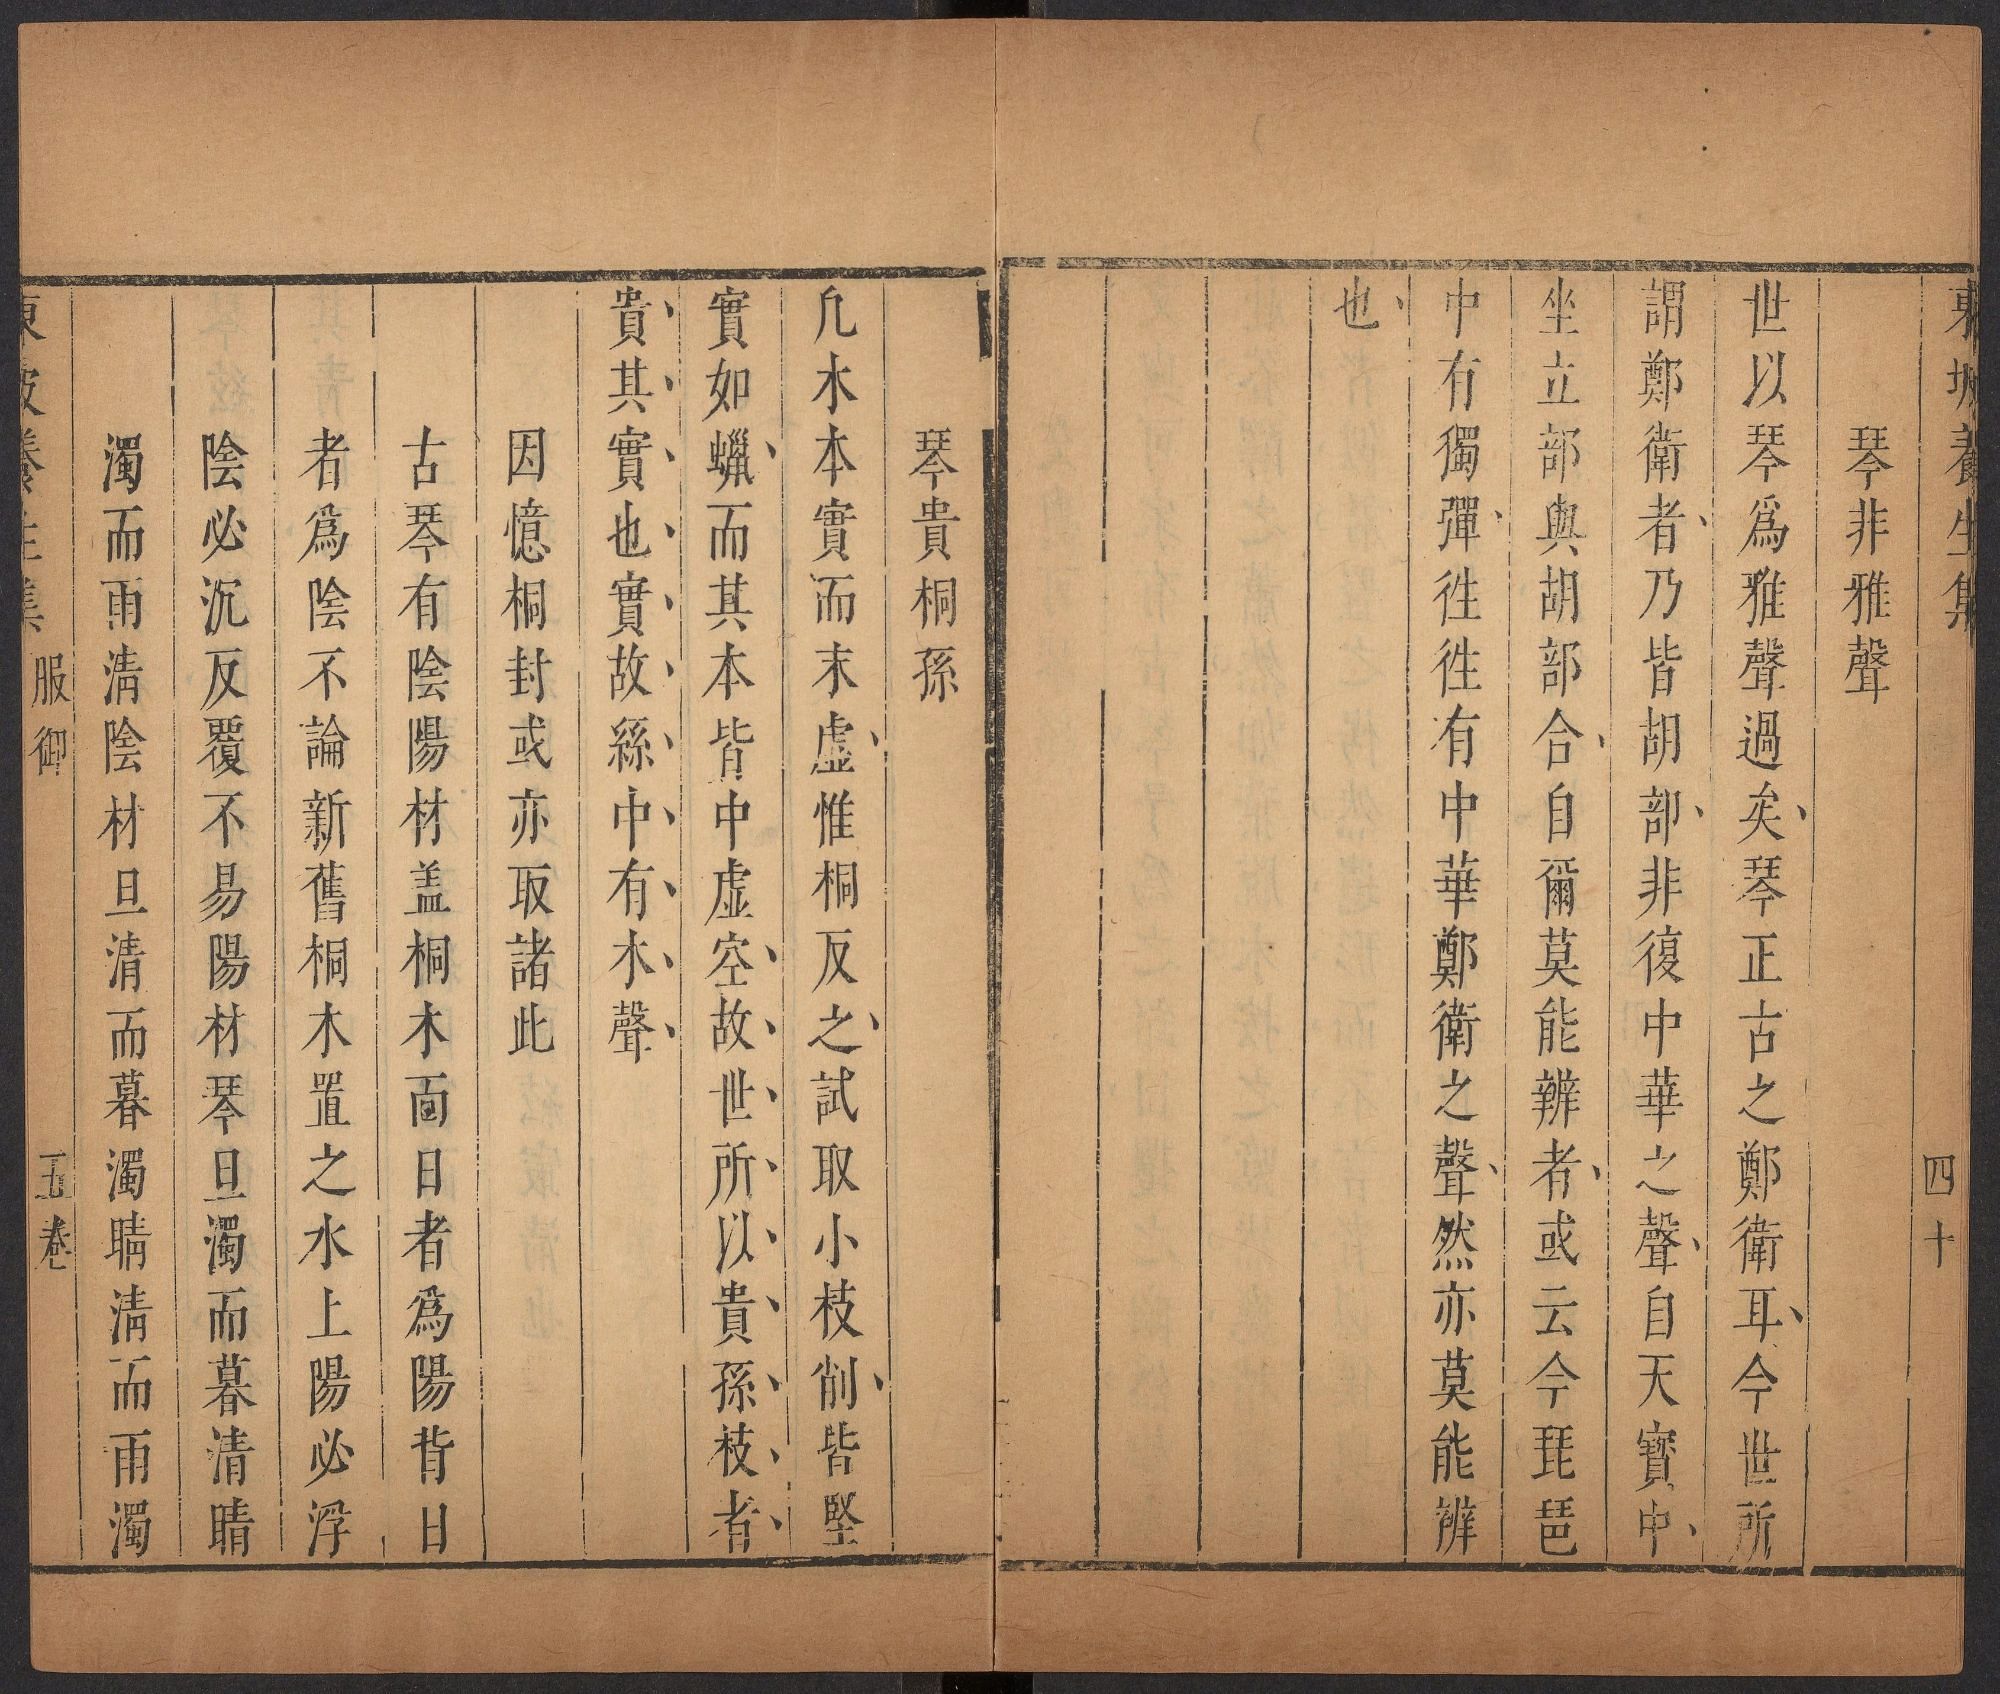 東坡養生集 四十
琴非雅聲
世以琴爲雅聲過矣琴正古之鄭衛耳今世所
謂鄭衛者乃皆胡部非復中華之聲自天寶中
坐立部與胡部合自爾莫能辨者或云今琵琶
中有獨彈徃徃有中華鄭衛之聲然亦莫能辨
也
琴貴桐孫
凢木本實而末虛惟桐反之試取小枝削皆堅
實如蠟而其本皆中虛空故世所以貴孫枝者
貴其實也實故絲中有木聲
因憶桐封或亦取諸此
古琴有陰陽材盖桐木面日者爲陽背日
者爲陰不論新舊桐木置之水上陽必浮
陰必沉反覆不易陽材琴旦濁而暮清晴
濁而雨清陰材旦清而暮濁晴清而雨濁
東坡養生集 服御 五卷